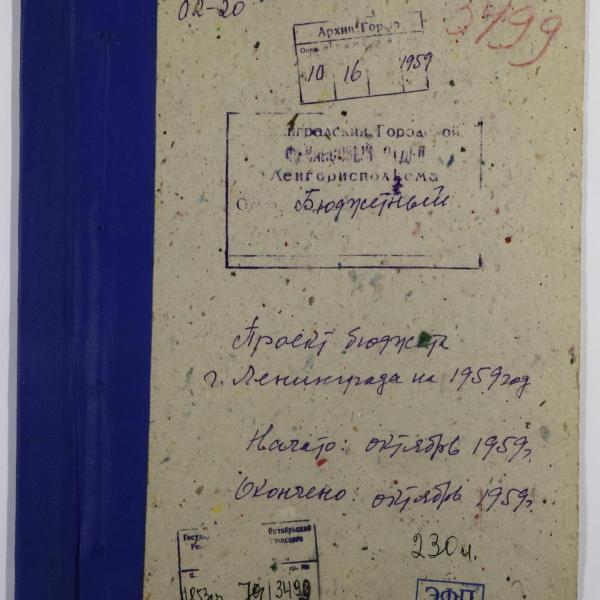 02-20
3499
Архив Горфо
10 16 1959
Городской
ФИНАНСОВЫЙ ОТДЕЛ
Ленгорисполкома
Бюджетный
Проект бюджета
г. Ленинграда на 1959 год
Начато: октябрь 1959г.
Окончено: октябрь 1959г.
230 л.
Октябрьской
1853 3490
ЭФП